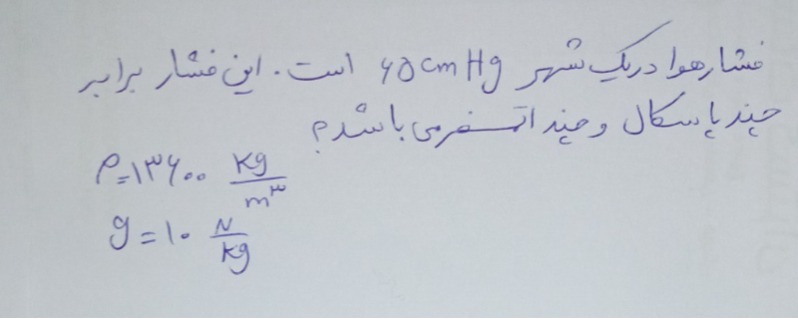 فشار هوا در یک شهر ۶۵ cm Hg است. این فشار برابر
چند پاسکال و چند اتمسفر می باشد؟
ρ=۱۳۶۰۰ kg/m³
g=۱۰ N/kg